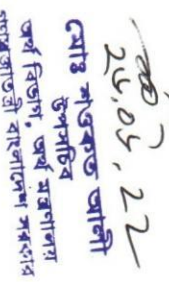 মোঃ শওকত আলী
উপসচিব
অর্থ বিভাগ, অর্থ মন্ত্রণালয়
গণপ্রজাতন্ত্রী বাংলাদেশ সরকার